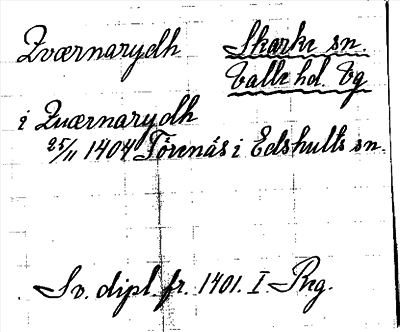 Zværnarydh Skarke sn.
Valle hd. Vg
i Zuærnarydh
25/11 1404 Törenäs i Edshults sn.
Sv. dipl. fr. 1401. I Reg.